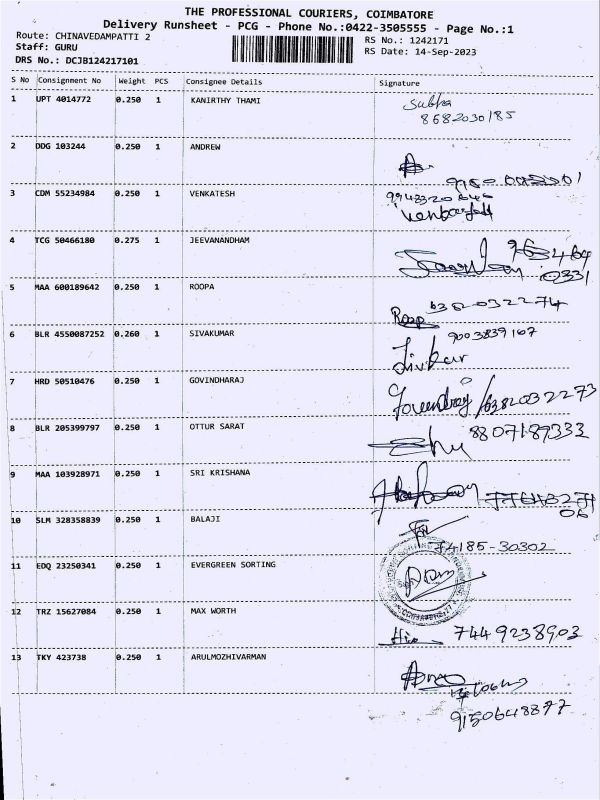 THE PROFESSIONAL COURIERS, COIMBATORE
Delivery Runsheet - PCG - Phone No.:0422-3505555 - Page No.:1
Route: CHINAVEDAMPATTI 2
RS No.: 1242171
Staff: GURU
RS Date: 14-Sep-2023
DRS No.: DCJB124217101
S No Consignment No Weight PCS Consignee Details Signature
1 UPT 4014772 0.250 1 KANIRTHY THAMI Subha
8682030185
2 DDG 103244 0.250 1 ANDREW
3 CDM 55234984 0.250 1 VENKATESH
4 TCG 50466180 0.275 1 JEEVANANDHAM
5 MAA 600189642 0.250 1 ROOPA
6382032274
6 BLR 4550087252 0.260 1 SIVAKUMAR 9003839167
7 HRD 50510476 0.250 1 GOVINDHARAJ
6382032273
8 BLR 205399797 0.250 1 OTTUR SARAT 8807189333
9 MAA 103928971 0.250 1 SRI KRISHANA
10 SLM 328358839 0.250 1 BALAJI
74185-30302
11 EDQ 23250341 0.250 1 EVERGREEN SORTING
12 TRZ 15627084 0.250 1 MAX WORTH
7449238903
13 TKY 423738 0.250 1 ARULMOZHIVARMAN
9150648877